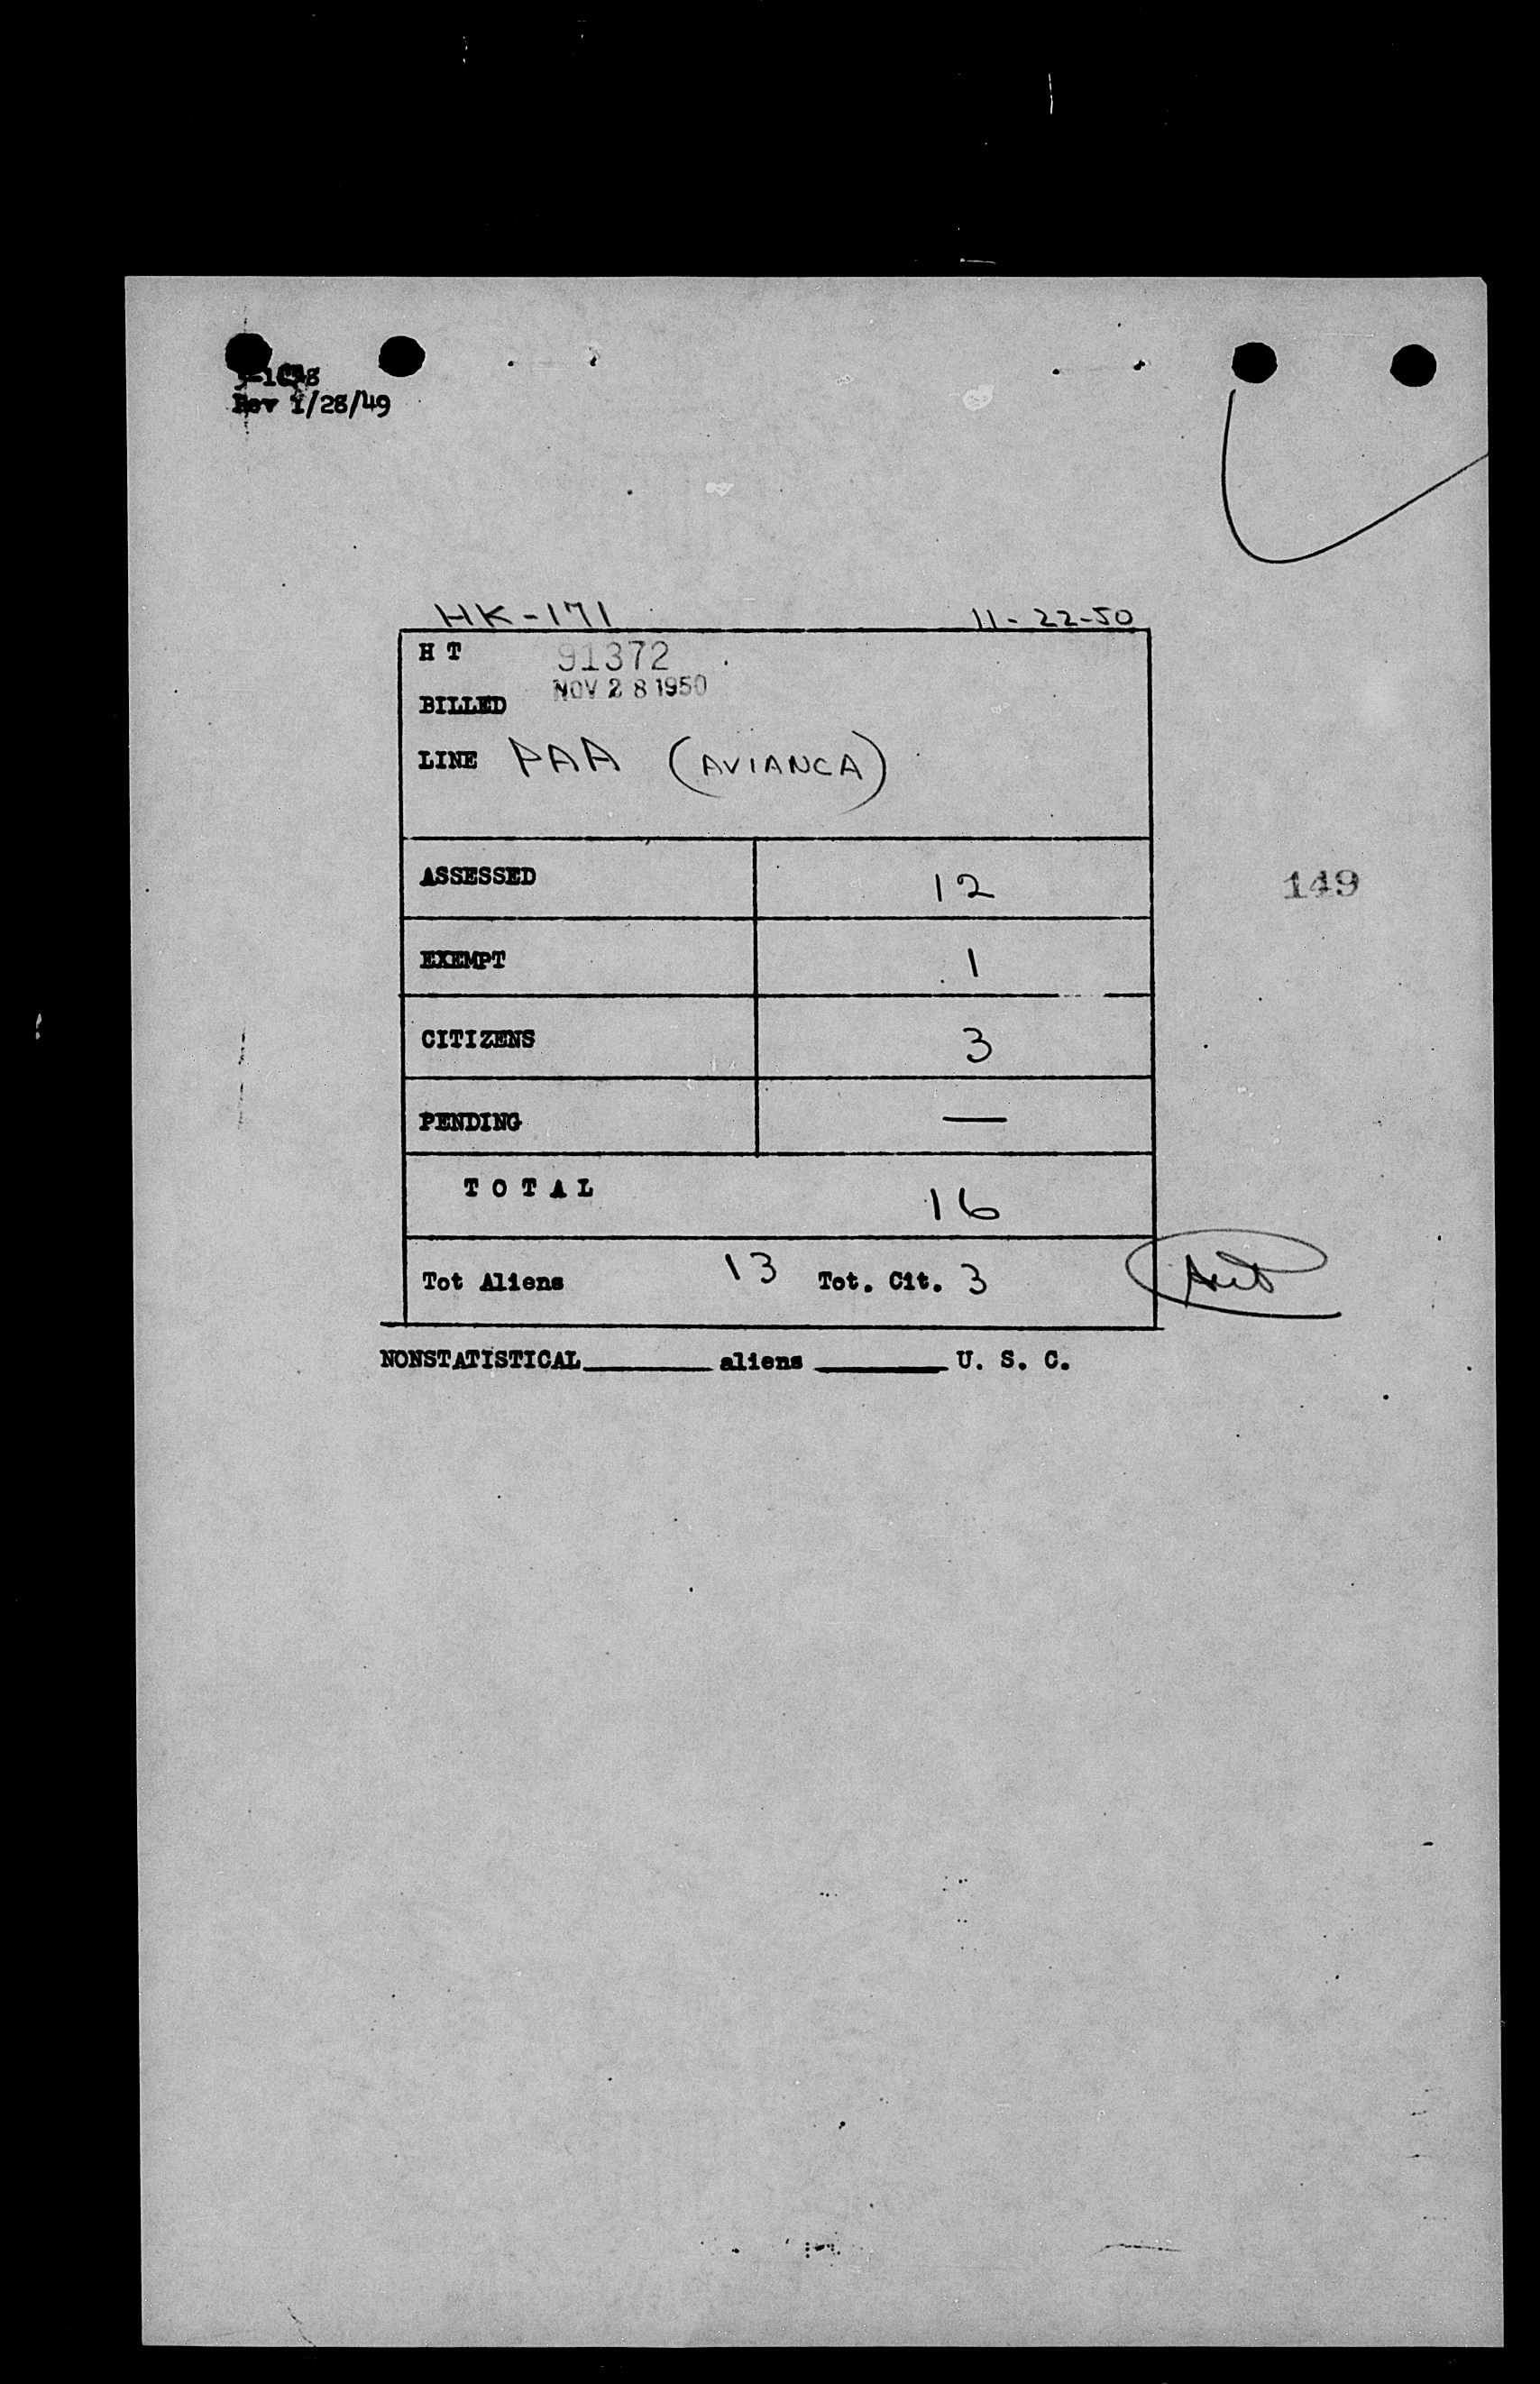 Rev 1/28/49
HK-171 11-22-50
H T 91372
NOV 28 1950
BILLED
LINE PAA (AVIANCA)
ASSESSED 12
149
EXEMPT 1
CITIZENS 3
PENDING —
TOTAL 16
Tot Aliens 13 Tot. Cit. 3
NONSTATISTICAL________ aliens ________ U. S. C.